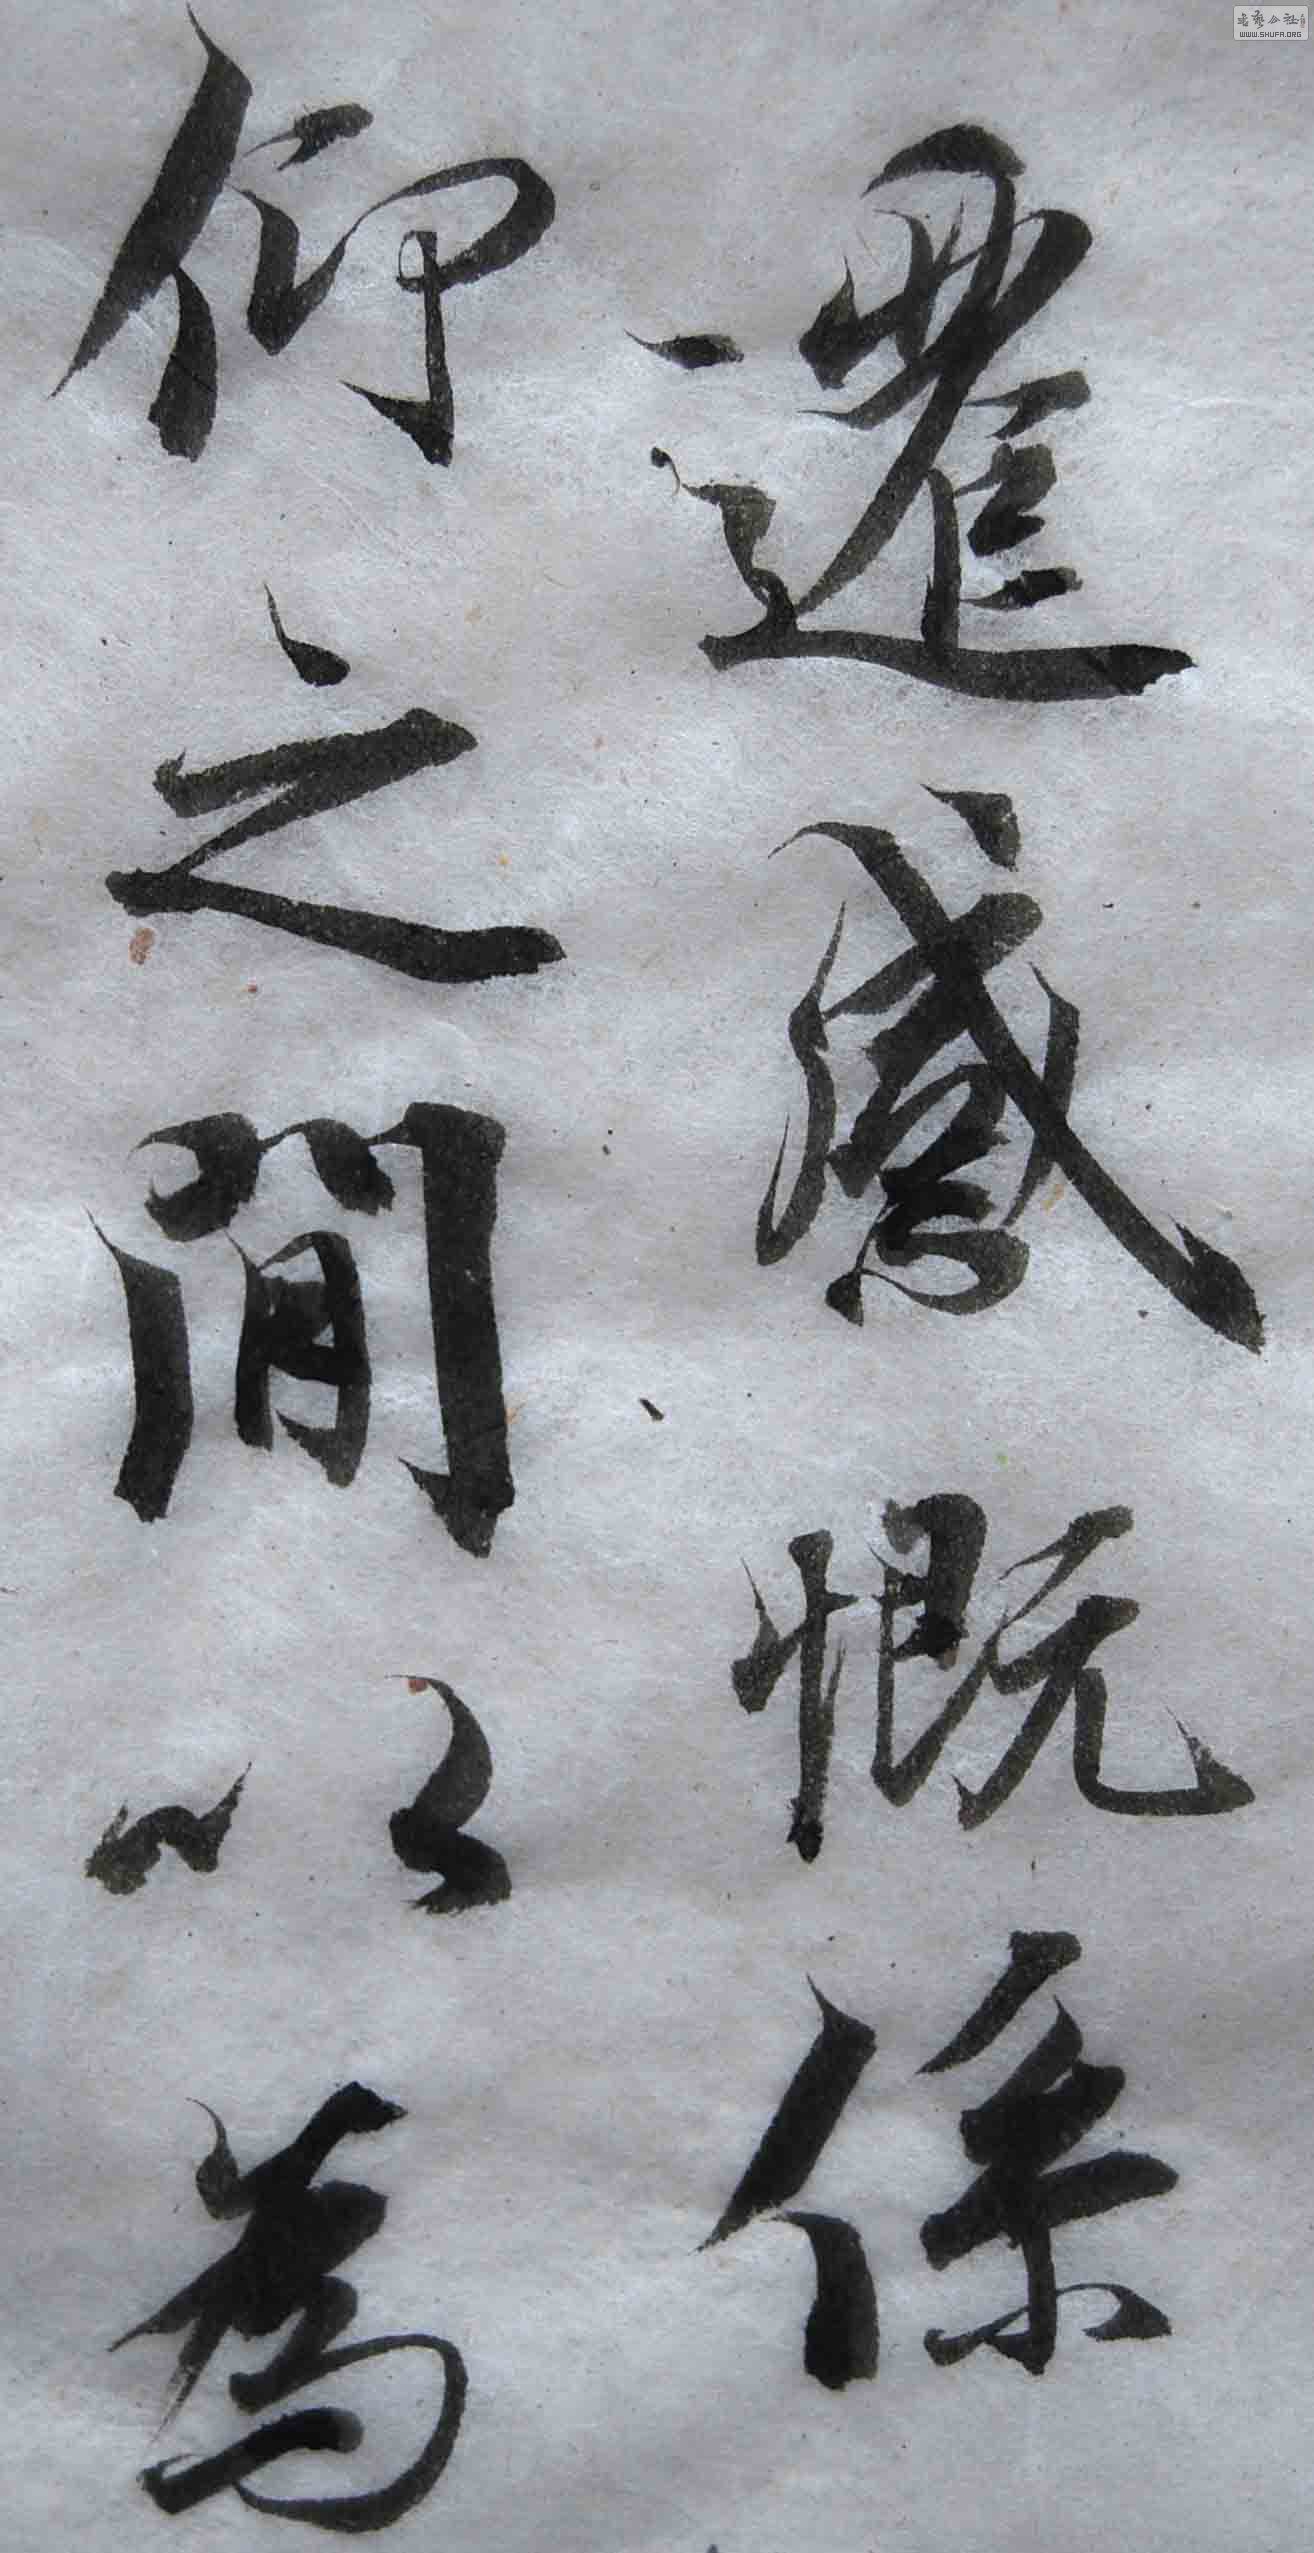 遷感慨係
仰之閒以為
書藝公社
WWW.SHUFA.ORG